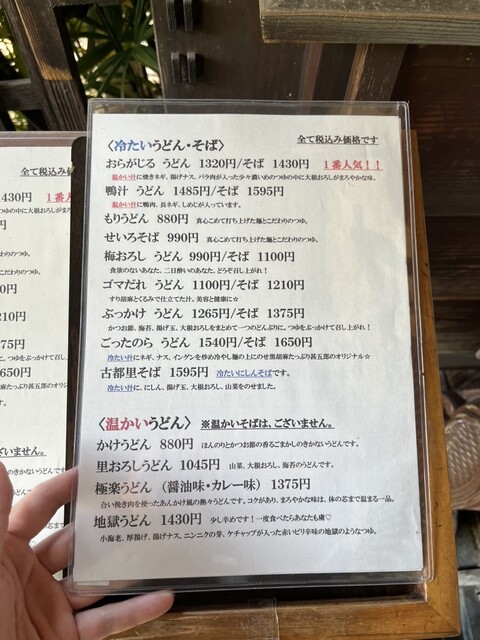 〈冷たいうどん・そば〉 全て税込み価格です
おらがじる うどん 1320円/そば 1430円 1番人気！！
温かい汁に焼きネギ、揚げナス、バラ肉が入った少々濃いめのつゆの中に大根おろしがまろやかな味。
鴨汁 うどん 1485円/そば 1595円
温かい汁に鴨肉、長ネギ、しめじが入っています。
もりうどん 880円 真心こめて打ち上げた麺とこだわりのつゆ。
せいろそば 990円 真心こめて打ち上げた麺とこだわりのつゆ。
梅おろし うどん 990円/そば 1100円
食欲のないあなた、二日酔いのあなた、どうぞ召し上がれ！
ゴマだれ うどん 1100円/そば 1210円
すり胡麻とくるみで仕立てた汁。美容と健康に☆
ぶっかけ うどん 1265円/そば 1375円
かつお節、海苔、揚げ玉、大根おろしをまとめて一つのどんぶりに。つゆをぶっかけて召し上がれ！
ごったのら うどん 1540円/そば 1650円
冷たい汁にネギ、ナス、インゲンを炒め冷やし麺の上にのせ黒胡麻たっぷり甚五郎のオリジナル☆
古都里そば 1595円 冷たいにしんそばです。
冷たい汁に、にしん、揚げ玉、大根おろし、山菜をのせました。
〈温かいうどん〉 ※温かいそばは、ございません。
かけうどん 880円 ほんのりとかつお節の香るごまかしのきかないうどんです。
里おろしうどん 1045円 山菜、大根おろし、海苔のうどんです。
極楽うどん （醤油味・カレー味） 1375円
合い挽き肉を使ったあんかけ風の熱々うどんです。コクがあり、まろやかな味は、体の芯まで温まる一品。
地獄うどん 1430円 少し辛めです！一度食べたらあなたも虜♡
小海老、厚揚げ、揚げナス、ニンニクの芽、ケチャップが入った赤いピリ辛味の地獄のようなつゆ。
全て税込み価
430円 1番人